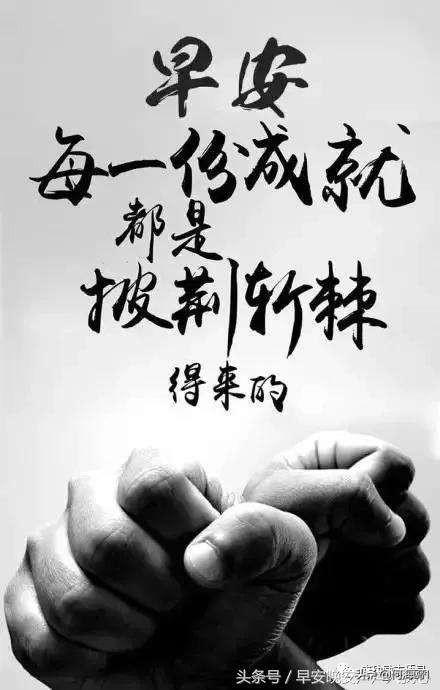 早安
每一份成就
都是
披荆斩棘
得来的
头条号 / 早安晚安